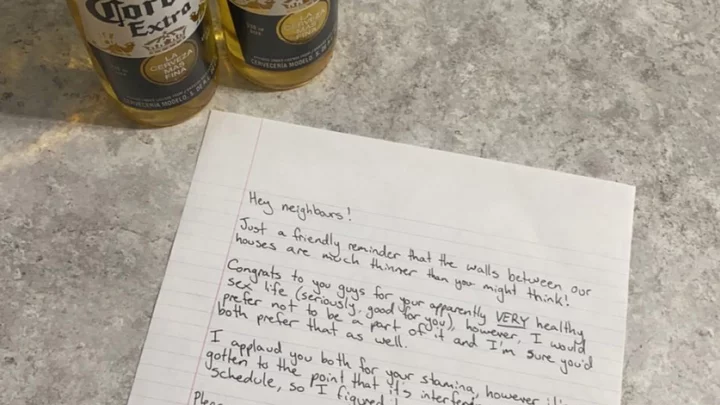 Corona
Extra
LA
CERVEZA
MAS
FINA
CERVECERIA MODELO, S. DE R.L.
LA
CERVEZA
MAS
FINA
CERVECERIA MODELO, S. DE R.L.
Hey neighbours!
Just a friendly reminder that the walls between our
houses are much thinner than you might think!
Congrats to you guys for your apparently VERY healthy
sex life (seriously, good for you), however, I would
prefer not to be a part of it and I'm sure you'd
both prefer that as well.
I applaud you both for your stamina, however it's
gotten to the point that it's
schedule, so I figured